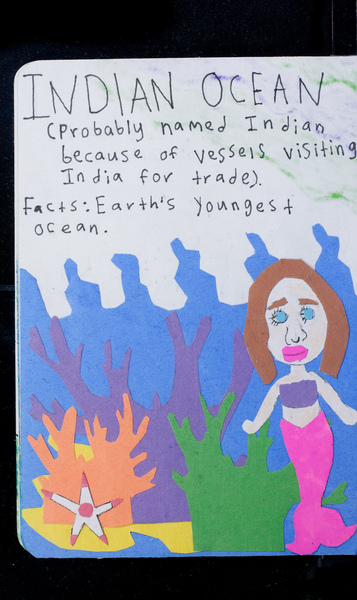 INDIAN OCEAN
(Probably named Indian
because of vessels visiting
India for trade).
Facts: Earth's Youngest
ocean.